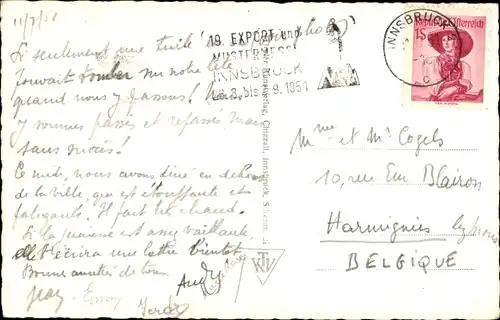 11/7/51
Si seulement une tuile
pouvait tomber sur notre tête
quand nous y passons!
Y sommes passés et repassés mais
sans succès!
Ce midi, nous avons diné en dehors
de la ville, que est étouffante et
fatigante. Il fait très chaud.
Si la paresse est assez vaillante
elle t'écrira une lettre bientôt.
Bonne amitiés de tous.
19. EXPORT und
MUSTERMESSE
INNSBRUCK
bis 9.1951
INNSBRUCK
Republik Österreich
1S
Chizzali, Innsbruck
Mme et Mr Cogels
10, rue Em Blairon
Harmignies lez Mons
BELGIQUE